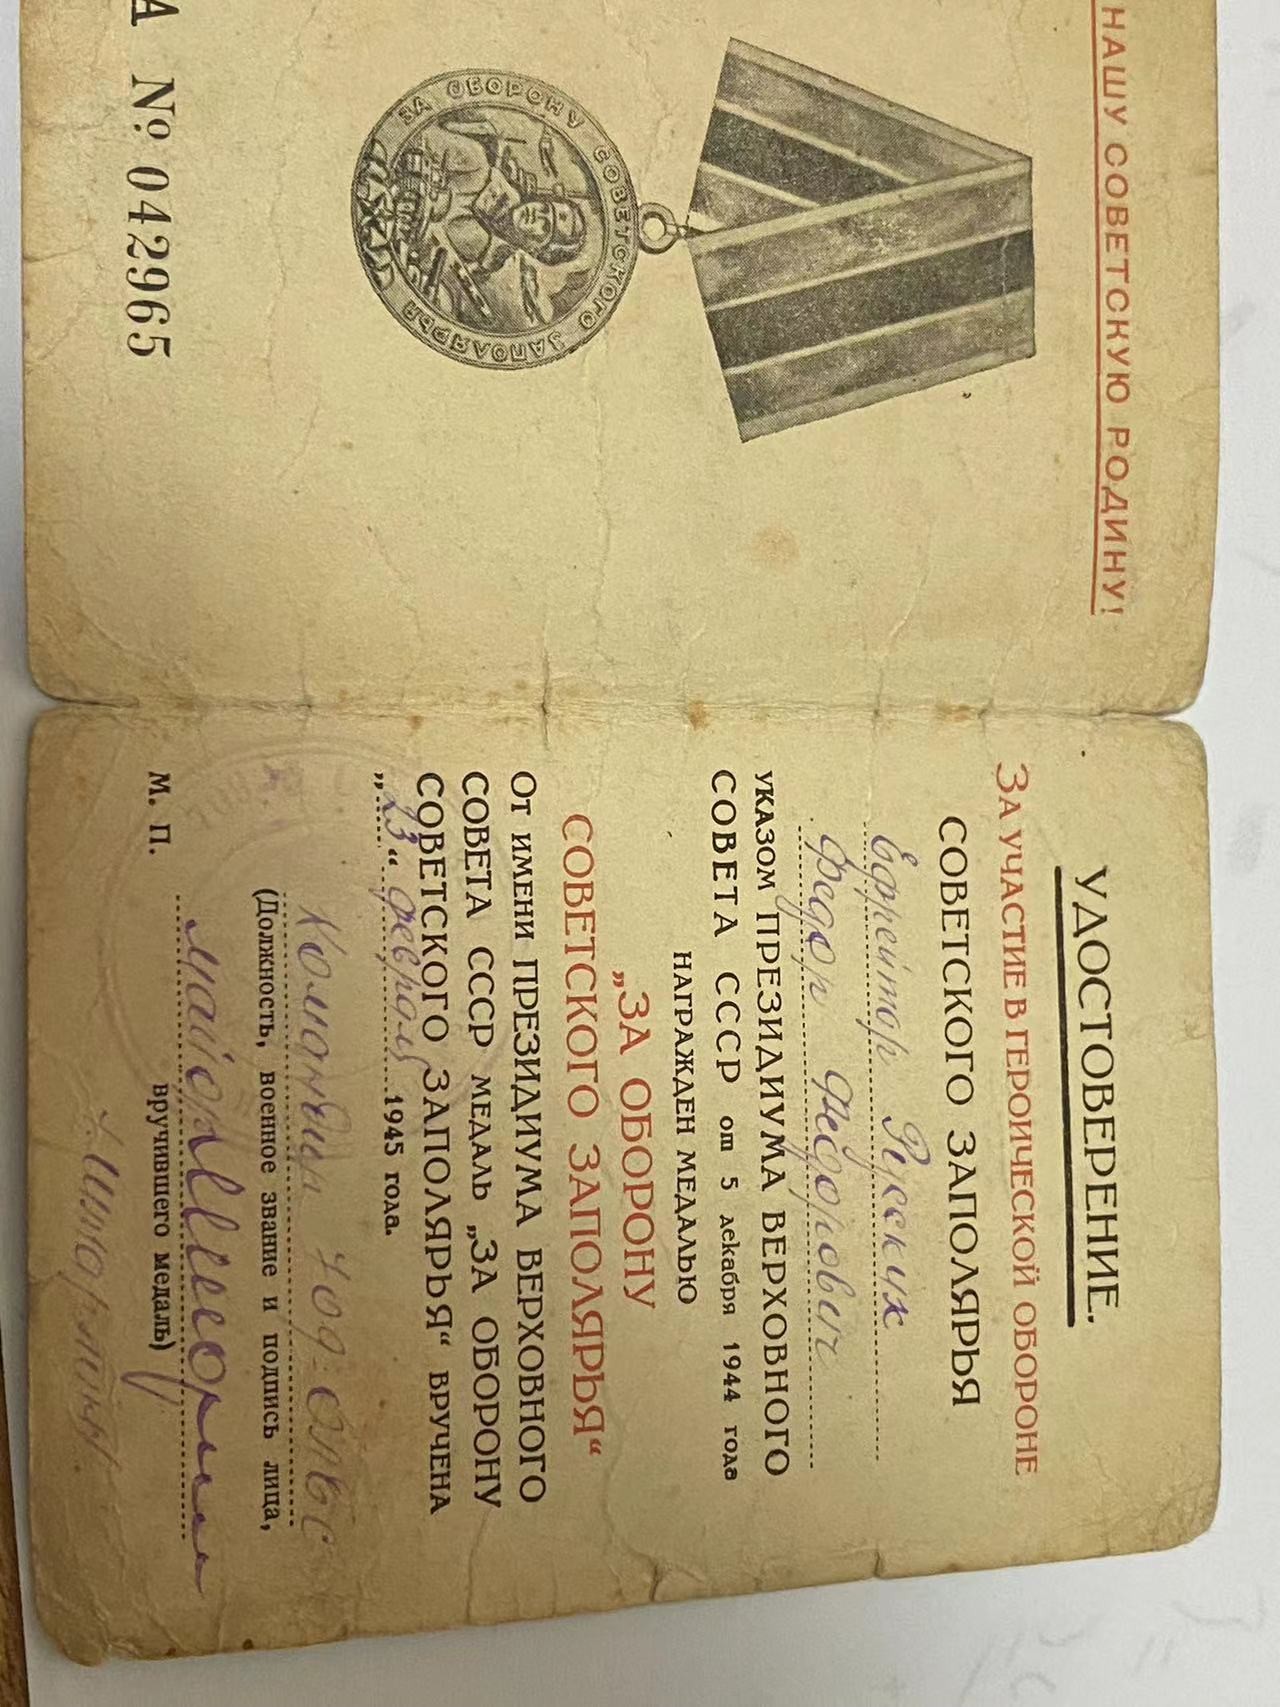 НАШУ СОВЕТСКУЮ РОДИНУ!
ЗА ОБОРОНУ СОВЕТСКОГО ЗАПОЛЯРЬЯ
А № 042965
УДОСТОВЕРЕНИЕ.
ЗА УЧАСТИЕ В ГЕРОИЧЕСКОЙ ОБОРОНЕ
СОВЕТСКОГО ЗАПОЛЯРЬЯ
Ефрейтор Русских
Федор Федорович
УКАЗОМ ПРЕЗИДИУМА ВЕРХОВНОГО
СОВЕТА СССР от 5 декабря 1944 года
НАГРАЖДЕН МЕДАЛЬЮ
„ЗА ОБОРОНУ
СОВЕТСКОГО ЗАПОЛЯРЬЯ“
От имени ПРЕЗИДИУМА ВЕРХОВНОГО
СОВЕТА СССР МЕДАЛЬ „ЗА ОБОРОНУ
СОВЕТСКОГО ЗАПОЛЯРЬЯ“ ВРУЧЕНА
„23“ февраля 1945 года.
(Должность, военное звание и подпись лица,
майор
М. П. вручившего медаль)